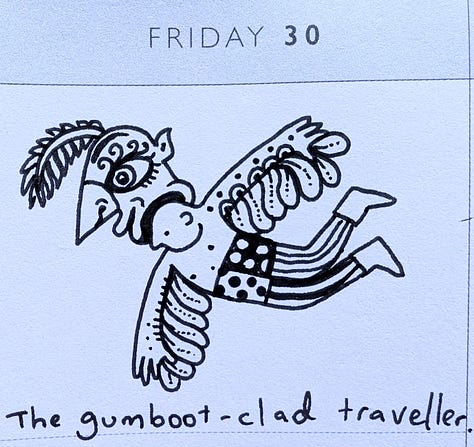 FRIDAY 30
The gumboot-clad traveller.